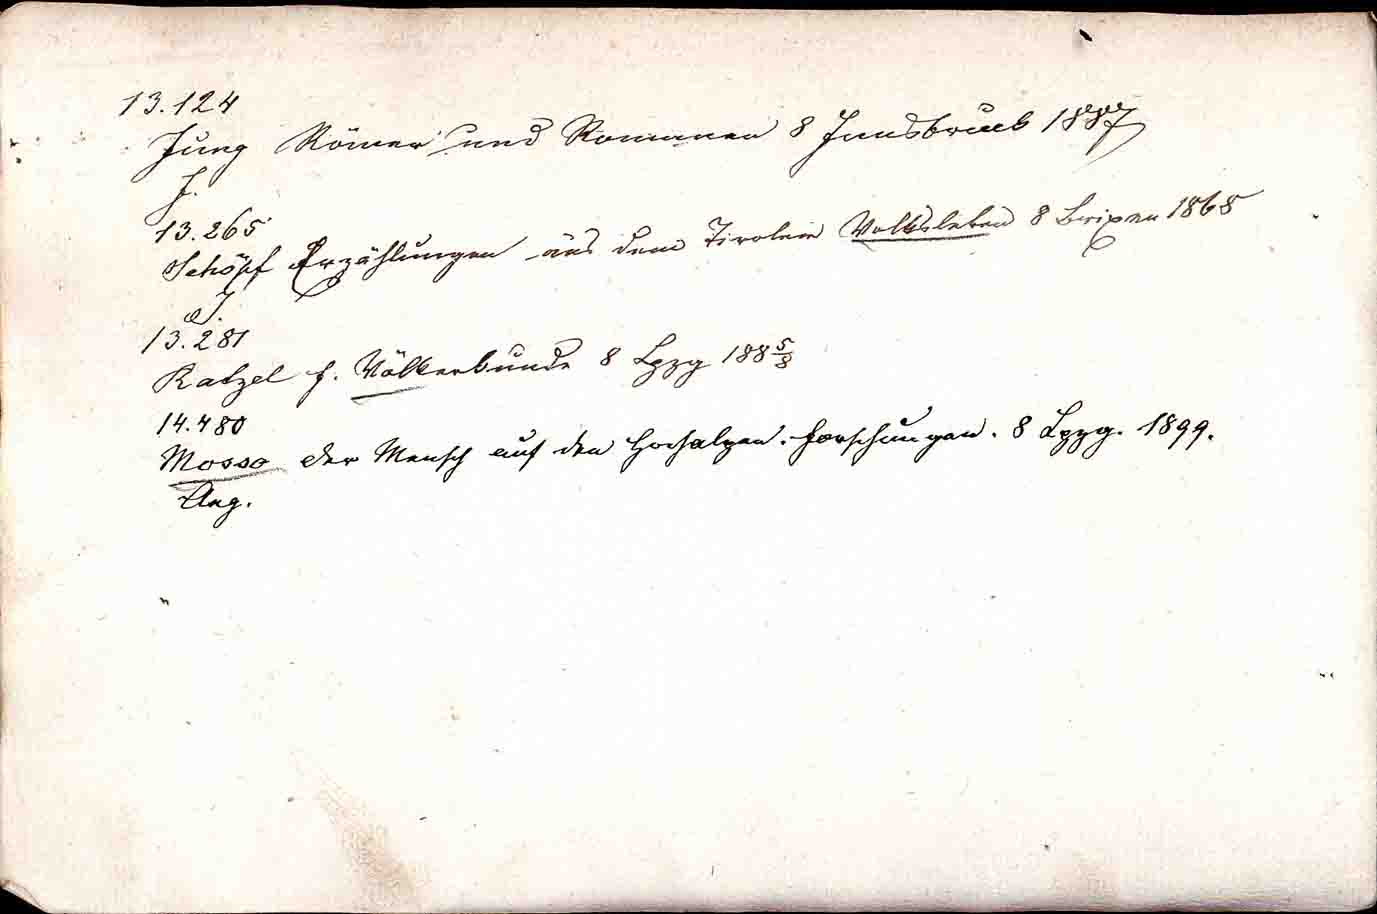 13.124
Jung Römer und Romanen 8 Innsbruck 1887
J.
13.265
Schöpf Erzählungen aus dem Tiroler Volksleben 8 Brixen 1868
J.
13.281
Ratzel f. Völkerkunde 8 Lpzg 188 5/8
14.480
Mosso der Mensch auf den Hochalpen. Forschungen. 8 Lpzg. 1899.
Ang.